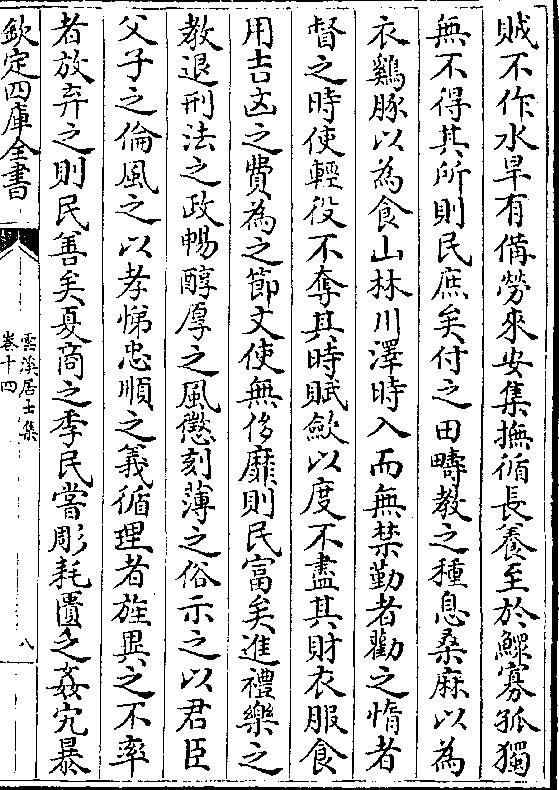 賊不作水旱有備勞來安集撫循長養至於鰥寡孤獨
無不得其所則民庶矣付之田疇教之種息桑麻以為
衣鷄豚以為食山林川澤時入而無禁勤者勸之惰者
督之時使輕役不奪其時賦歛以度不盡其財衣服食
用吉凶之費為之節文使無侈靡則民富矣進禮樂之
教退刑法之政暢醇厚之風懲刻薄之俗示之以君臣
父子之倫風之以孝悌忠順之義循理者旌異之不率
者放弃之則民善矣夏商之季民嘗彫耗匱乏姦宄暴
欽定四庫全書
雲溪居士集
卷十四
八